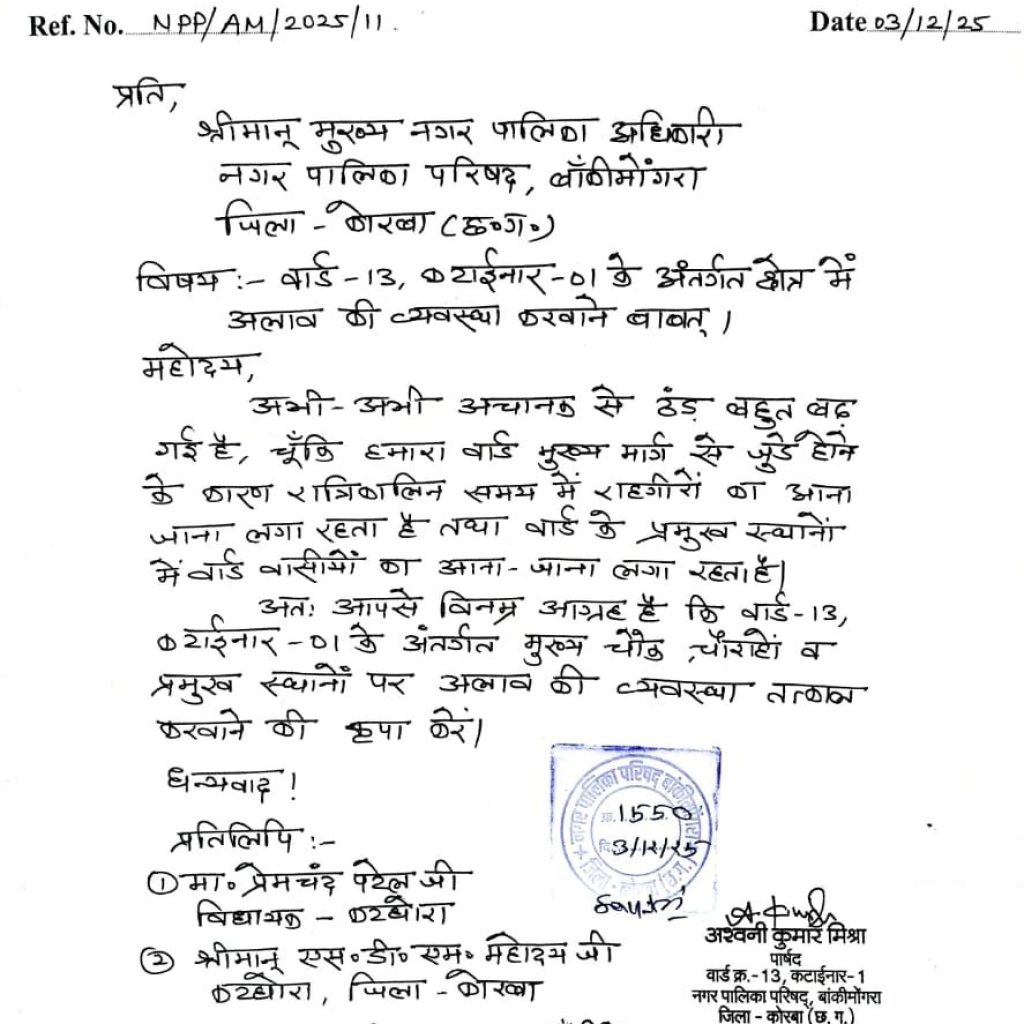 Ref. No. NPP/AM/2025/11.
Date 03/12/25
प्रति,
श्रीमान् मुख्य नगर पालिका अधिकारी
नगर पालिका परिषद, बाँकीमोंगरा
जिला - कोरबा (छ०ग०)
विषय :- वार्ड -13, कटाईनार -01 के अंतर्गत क्षेत्र में
अलाव की व्यवस्था करवाने बाबत् ।
महोदय,
अभी - अभी अचानक से ठंड़ बहुत बढ़
गई है, चूँकि हमारा वार्ड मुख्य मार्ग से जुडे होने
के कारण रात्रिकालिन समय में राहगीरों का आना
जाना लगा रहता है तथा वार्ड के प्रमुख स्थानों
में वार्ड वासीयों का आना - जाना लगा रहता है।
अतः आपसे विनम्र आग्रह है कि वार्ड -13,
कटाईनार -01 के अंतर्गत मुख्य चौक, चौराहों व
प्रमुख स्थानों पर अलाव की व्यवस्था तत्काल
करवाने की कृपा करें।
धन्यवाद !
नगर पालिका परिषद् बांकीमोंगरा
क्र. 1550
दि. 3/12/25
जिला - कोरबा (छ.ग.)
प्रतिलिपि :-
① मा० प्रेमचंद पटेल जी
विधायक - कटघोरा
② श्रीमान् एस० डी० एम० महोदय जी
कटघोरा, जिला - कोरबा
अश्वनी कुमार मिश्रा
पार्षद
वार्ड क्र.-13, कटाईनार-1
नगर पालिका परिषद्, बांकीमोंगरा
जिला - कोरबा (छ.ग.)